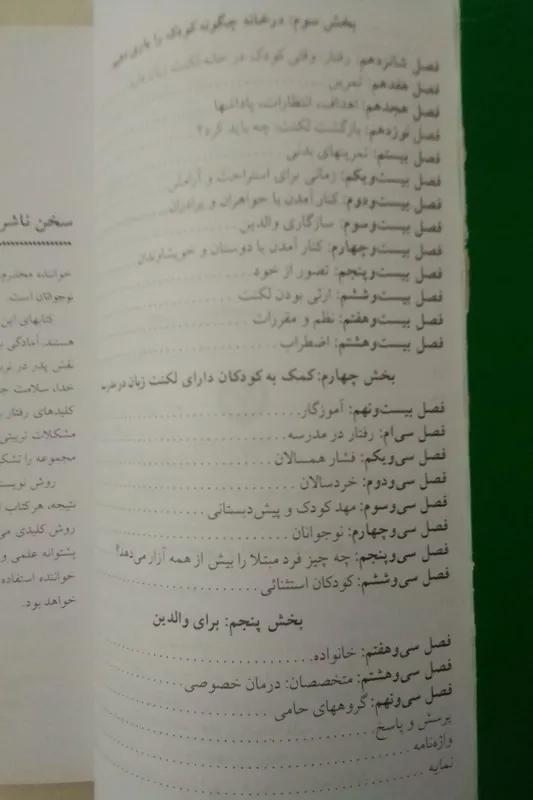 بخش سوم: در خانه چگونه کودک را یاری دهیم
فصل شانزدهم: رفتار وقتی کودک در خانه لکنت زبان دارد
فصل هفدهم: تمرین
فصل هجدهم: اهداف، انتظارات، پاداشها
فصل نوزدهم: بازگشت لکنت، چه باید کرد؟
فصل بیستم: تمرینهای بدنی
فصل بیست‌ویکم: زمانی برای استراحت و آرامش
فصل بیست‌ودوم: کنار آمدن با خواهران و برادران
فصل بیست‌وسوم: سازگاری والدین
فصل بیست‌وچهارم: کنار آمدن با دوستان و خویشاوندان
فصل بیست‌وپنجم: تصور از خود
فصل بیست‌وششم: ارثی بودن لکنت
فصل بیست‌وهفتم: نظم و مقررات
فصل بیست‌وهشتم: اضطراب
بخش چهارم: کمک به کودکان دارای لکنت زبان در مدرسه
فصل بیست‌ونهم: آموزگار
فصل سی‌ام: رفتار در مدرسه
فصل سی‌ویکم: فشار همسالان
فصل سی‌ودوم: خردسالان
فصل سی‌وسوم: مهد کودک و پیش‌دبستانی
فصل سی‌وچهارم: نوجوانان
فصل سی‌وپنجم: چه چیز فرد مبتلا را بیش از همه آزار می‌دهد؟
فصل سی‌وششم: کودکان استثنائی
بخش پنجم: برای والدین
فصل سی‌وهفتم: خانواده
فصل سی‌وهشتم: متخصصان: درمان خصوصی
فصل سی‌ونهم: گروههای حامی
پرسش و پاسخ
واژه‌نامه
نمایه
سخن ناشر
خواننده محترم
نوجوانان است.
کتابهای این
هستند. آمادگی ب
نقش پدر در تر
خدا، سلامت ج
کلیدهای رفتار ب
مشکلات تربیتی
مجموعه را تشک
روش نویس
نتیجه، هر کتاب
روش کلیدی می
پشتوانه علمی و
خواننده استفاده
خواهد بود.